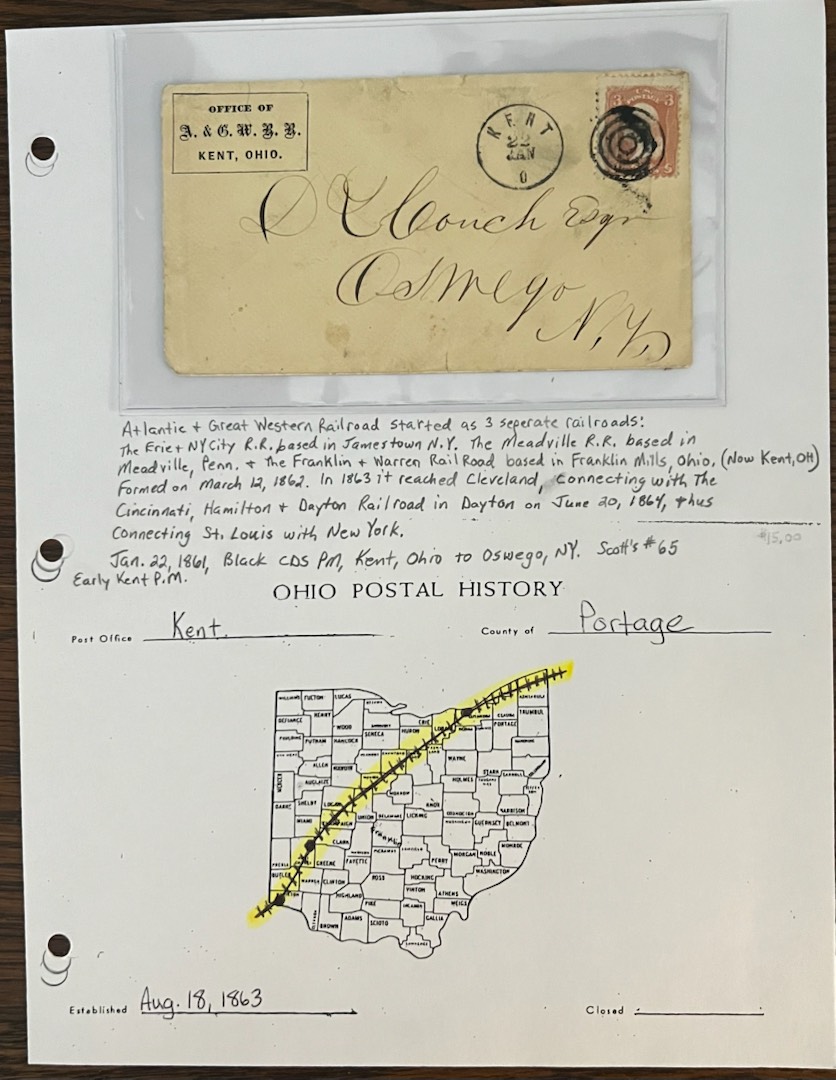 OFFICE OF
A. & G. W. R. R.
KENT, OHIO.
KENT
22
JAN
O
3 3
D L Couch Esqr
Oswego
N.Y.
Atlantic + Great Western Railroad started as 3 seperate railroads:
The Erie + NY City R.R. based in Jamestown N.Y. The Meadville R.R. based in
Meadville, Penn. + The Franklin + Warren RailRoad based in Franklin Mills, Ohio. (Now Kent, OH)
Formed on March 12, 1862. In 1863 it reached Cleveland, Connecting with The
Cincinnati, Hamilton + Dayton Railroad in Dayton on June 20, 1864, thus
Connecting St. Louis with New York.
$15.00
Jan. 22, 1861, Black CDS PM, Kent, Ohio to Oswego, NY. Scott's #65
Early Kent P.M.
OHIO POSTAL HISTORY
Post Office Kent County of Portage
WILLIAMS FULTON LUCAS
ASHTABULA
DEFIANCE HENRY WOOD ERIE GEAUGA TRUMBUL
PAULDING PUTNAM HANCOCK SENECA HURON PORTAGE
ALLEN WAYNE
MERCER AUGLAIZE STARK
HOLMES
DARKE SHELBY LOGAN MORROW KNOX HARRISON
MIAMI UNION DELAWARE LICKING GUERNSEY BELMONT
CLARK Franklin
PREBLE GREENE FAYETTE PERRY MORGAN NOBLE MONROE
BUTLER WARREN CLINTON ROSS HOCKING WASHINGTON
HIGHLAND VINTON ATHENS
PIKE MEIGS
BROWN ADAMS SCIOTO GALLIA
Established Aug. 18, 1863 Closed